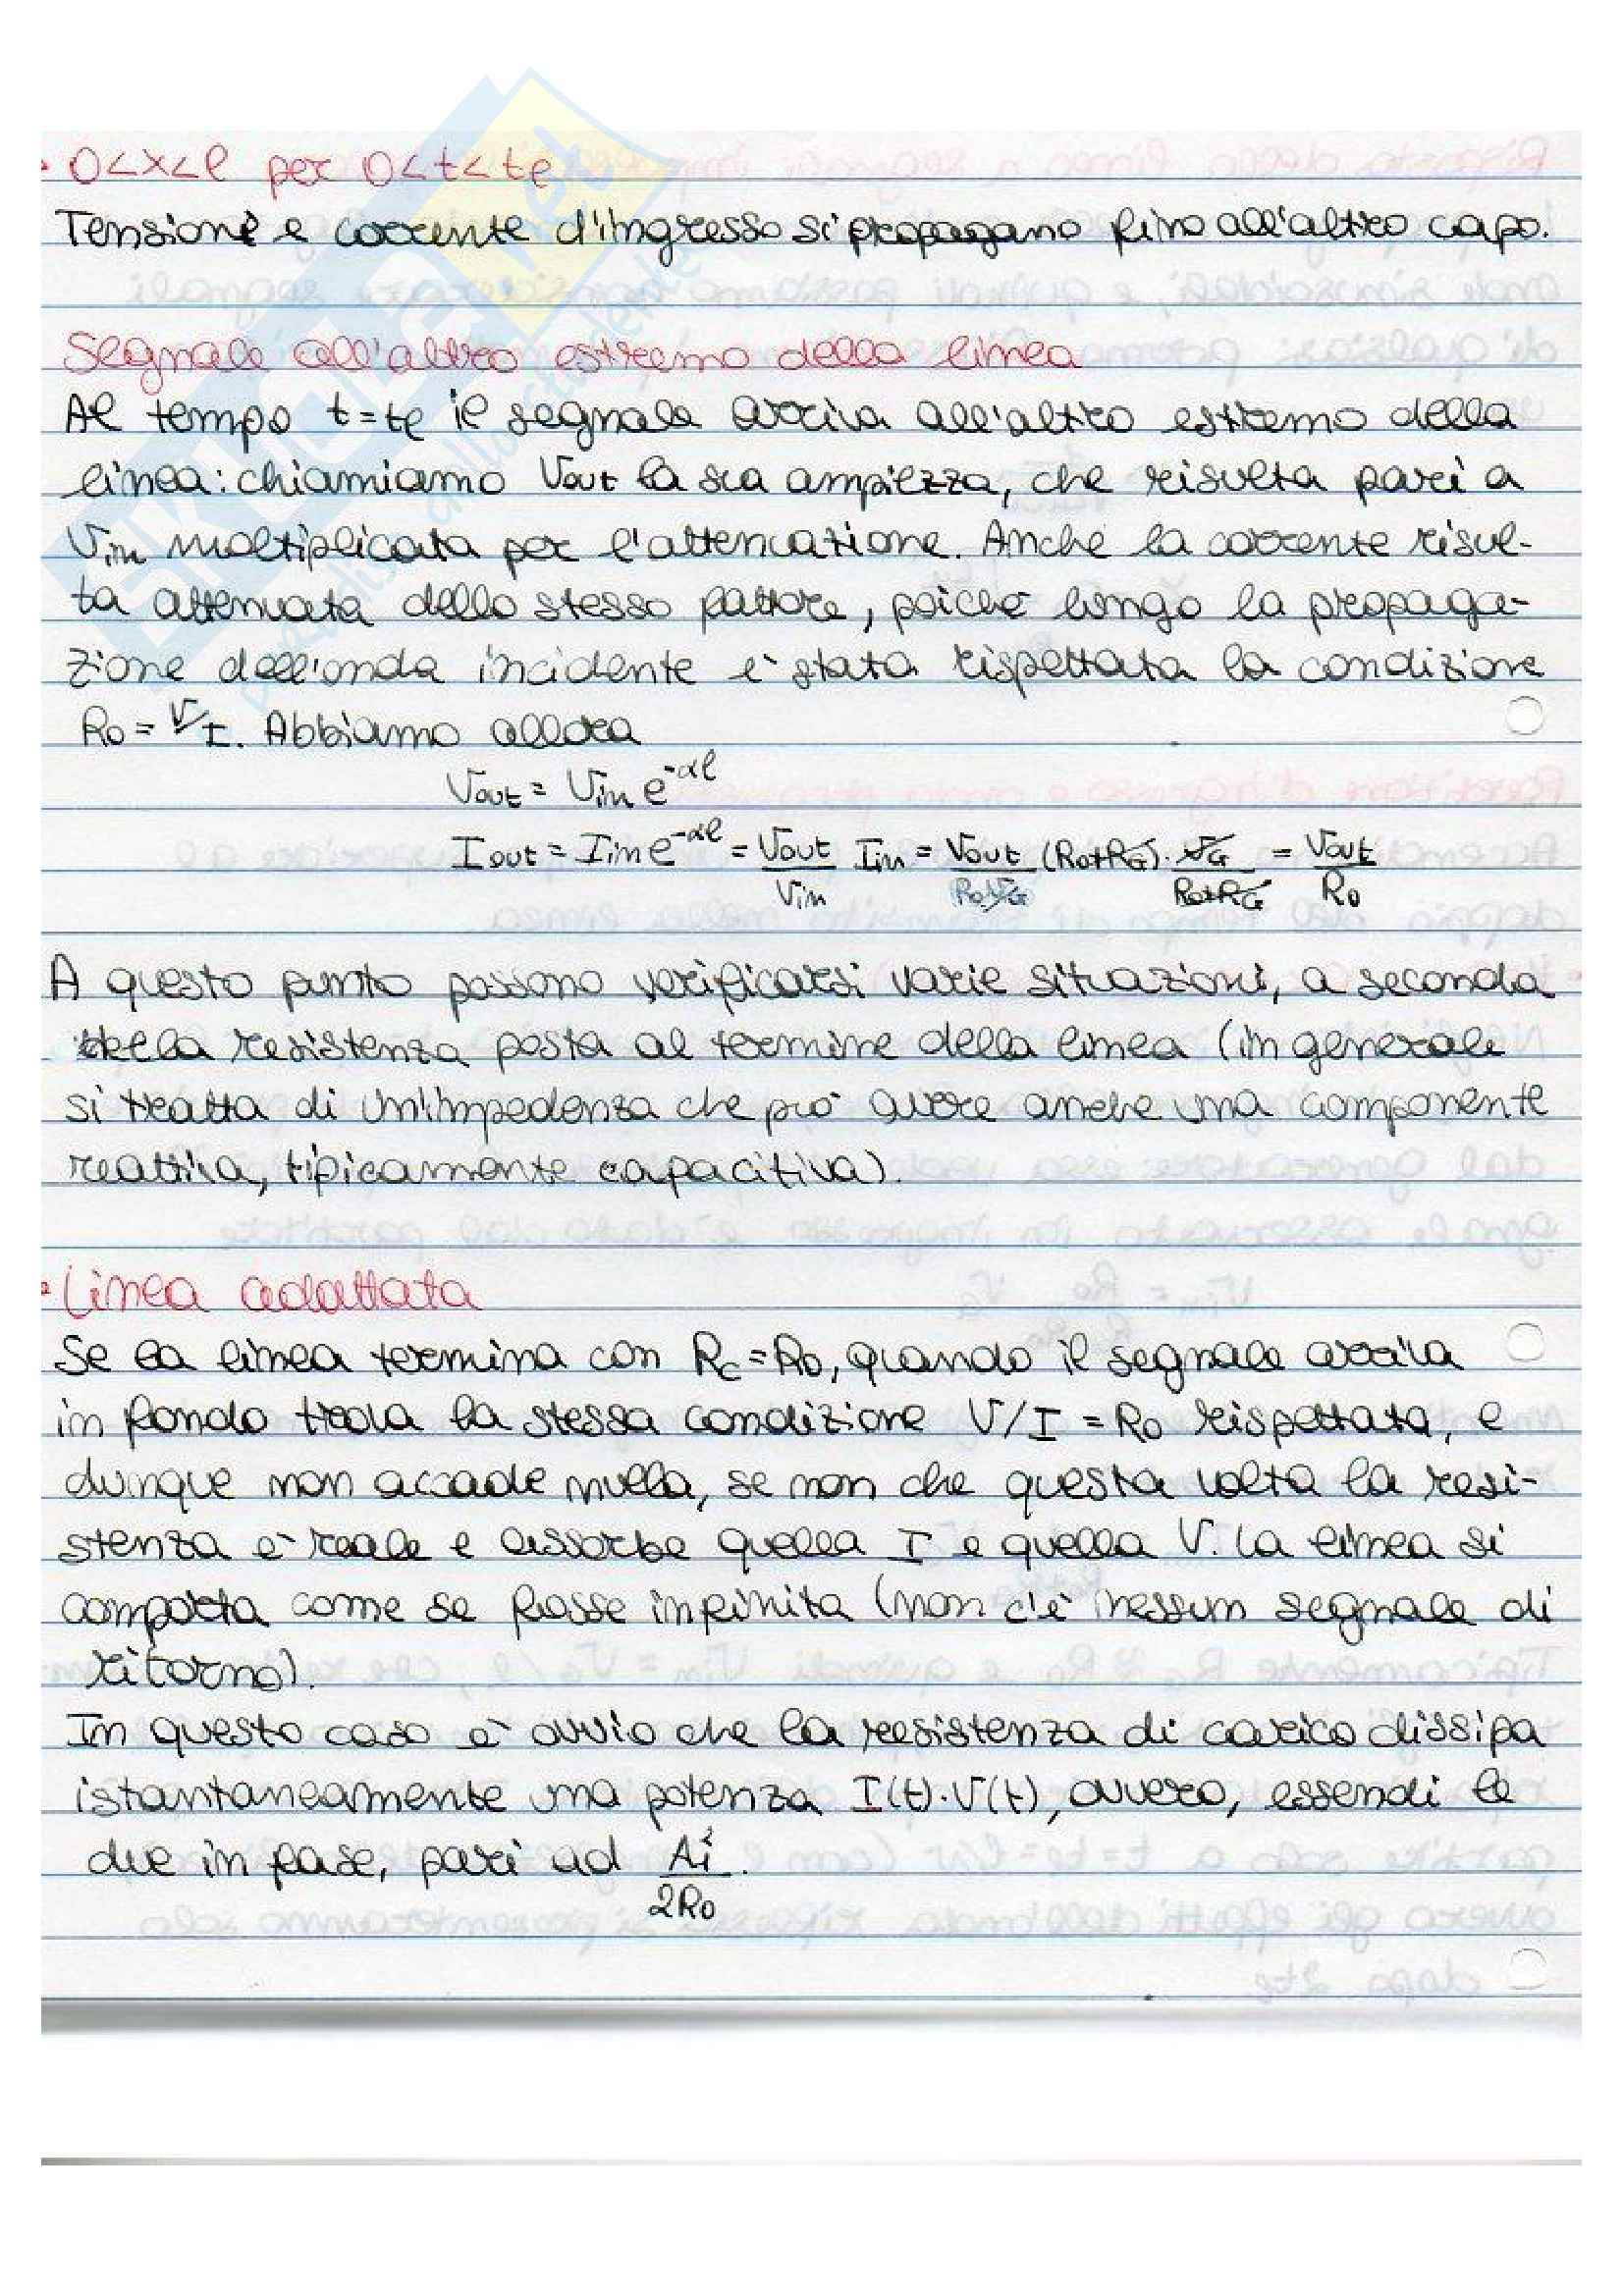 • 0<x<l per 0<t<te
Tensione e corrente d'ingresso si propagano fino all'altro capo.
Segnale all'altro estremo della linea
Al tempo t=te il segnale arriva all'altro estremo della
linea: chiamiamo Vout la sua ampiezza, che risulta pari a
Vin moltiplicata per l'attenuazione. Anche la corrente risul-
ta attenuata dello stesso fattore, poiché lungo la propaga-
zione dell'onda incidente è stata rispettata la condizione
R0 = V/I. Abbiamo allora
Vout = Vin e^-αl
Iout = Iin e^-αl = Vout/Vin Iin = Vout/(R0 VG) (R0+RG) · VG/(R0+RG) = Vout/R0
A questo punto possono verificarsi varie situazioni, a seconda
della resistenza posta al termine della linea (in generale
si tratta di un'impedenza che può avere anche una componente
reattiva, tipicamente capacitiva).
• Linea adattata
Se la linea termina con Rc=R0, quando il segnale arriva
in fondo trova la stessa condizione V/I = R0 rispettata, e
dunque non accade nulla, se non che questa volta la resi-
stenza è reale e assorbe quella I e quella V. La linea si
comporta come se fosse infinita (non c'è nessun segnale di
ritorno).
In questo caso è ovvio che la resistenza di carico dissipa
istantaneamente una potenza I(t)·V(t), ovvero, essendi le
due in fase, pari ad Ai²/2R0.